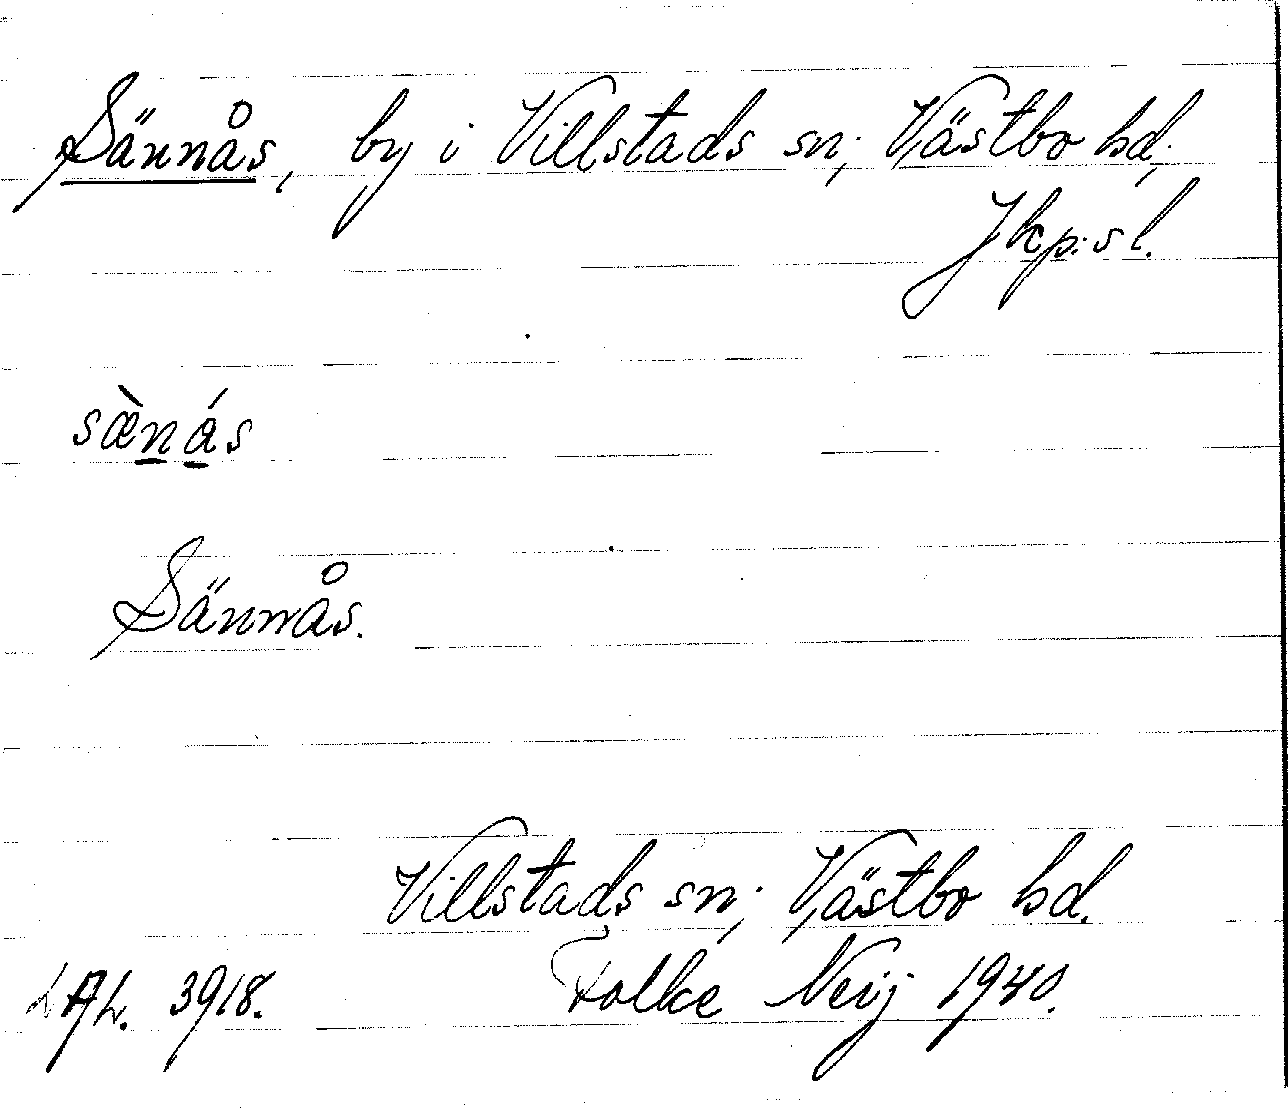 Sännås, by i Villstads sn; Västbo hd;
Jkp:s l.
sæ̀ṉá̱s
Sännås.
Villstads sn; Västbo hd.
LAL. 3918. Folke Neij 1940.